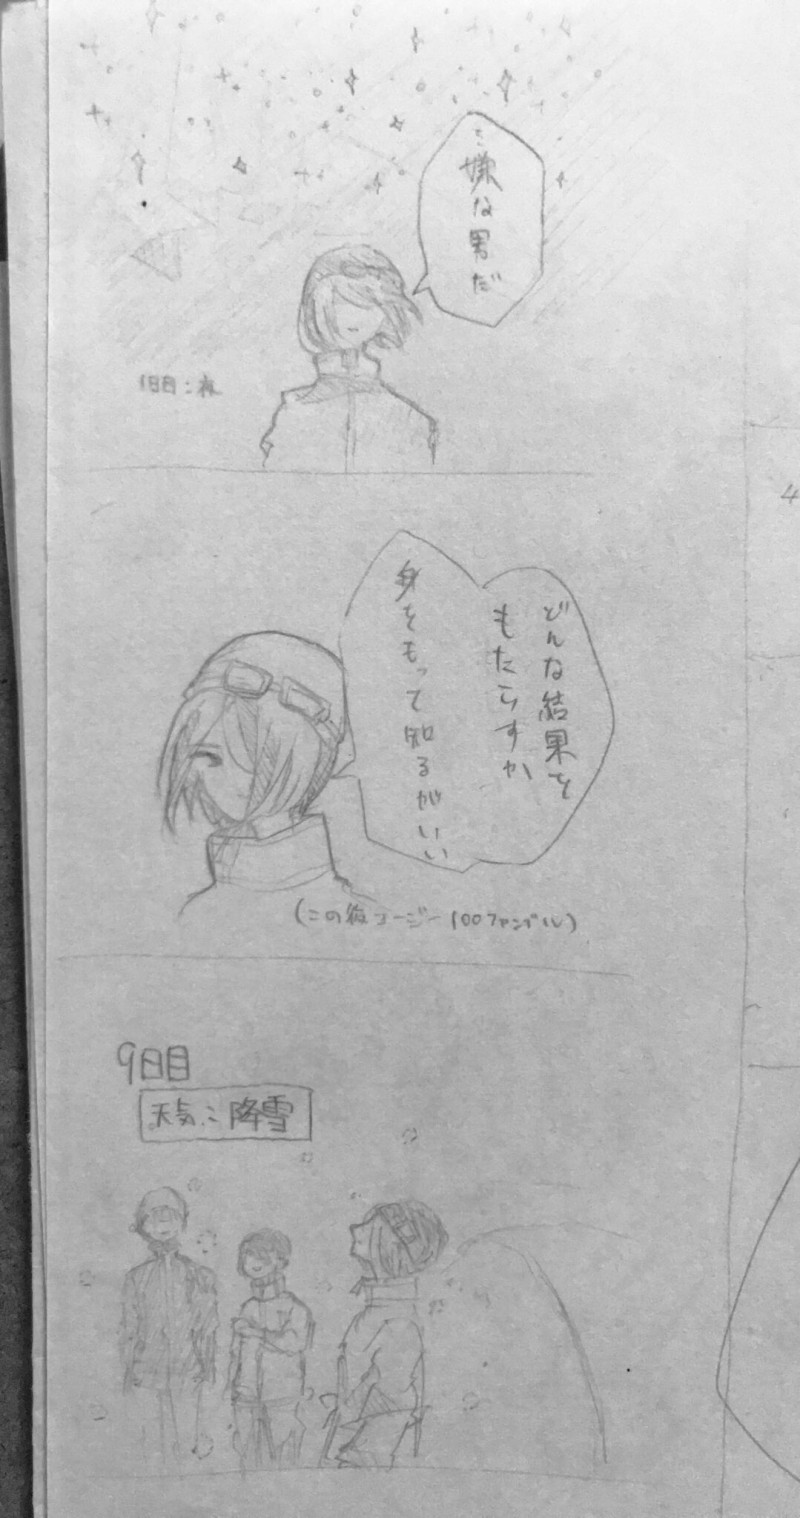 …嫌な男だ
1日目:夜
どんな結果を
もたらすか
身をもって知るがいい
(この後コージー100ファンブル)
9日目
天気:降雪
4